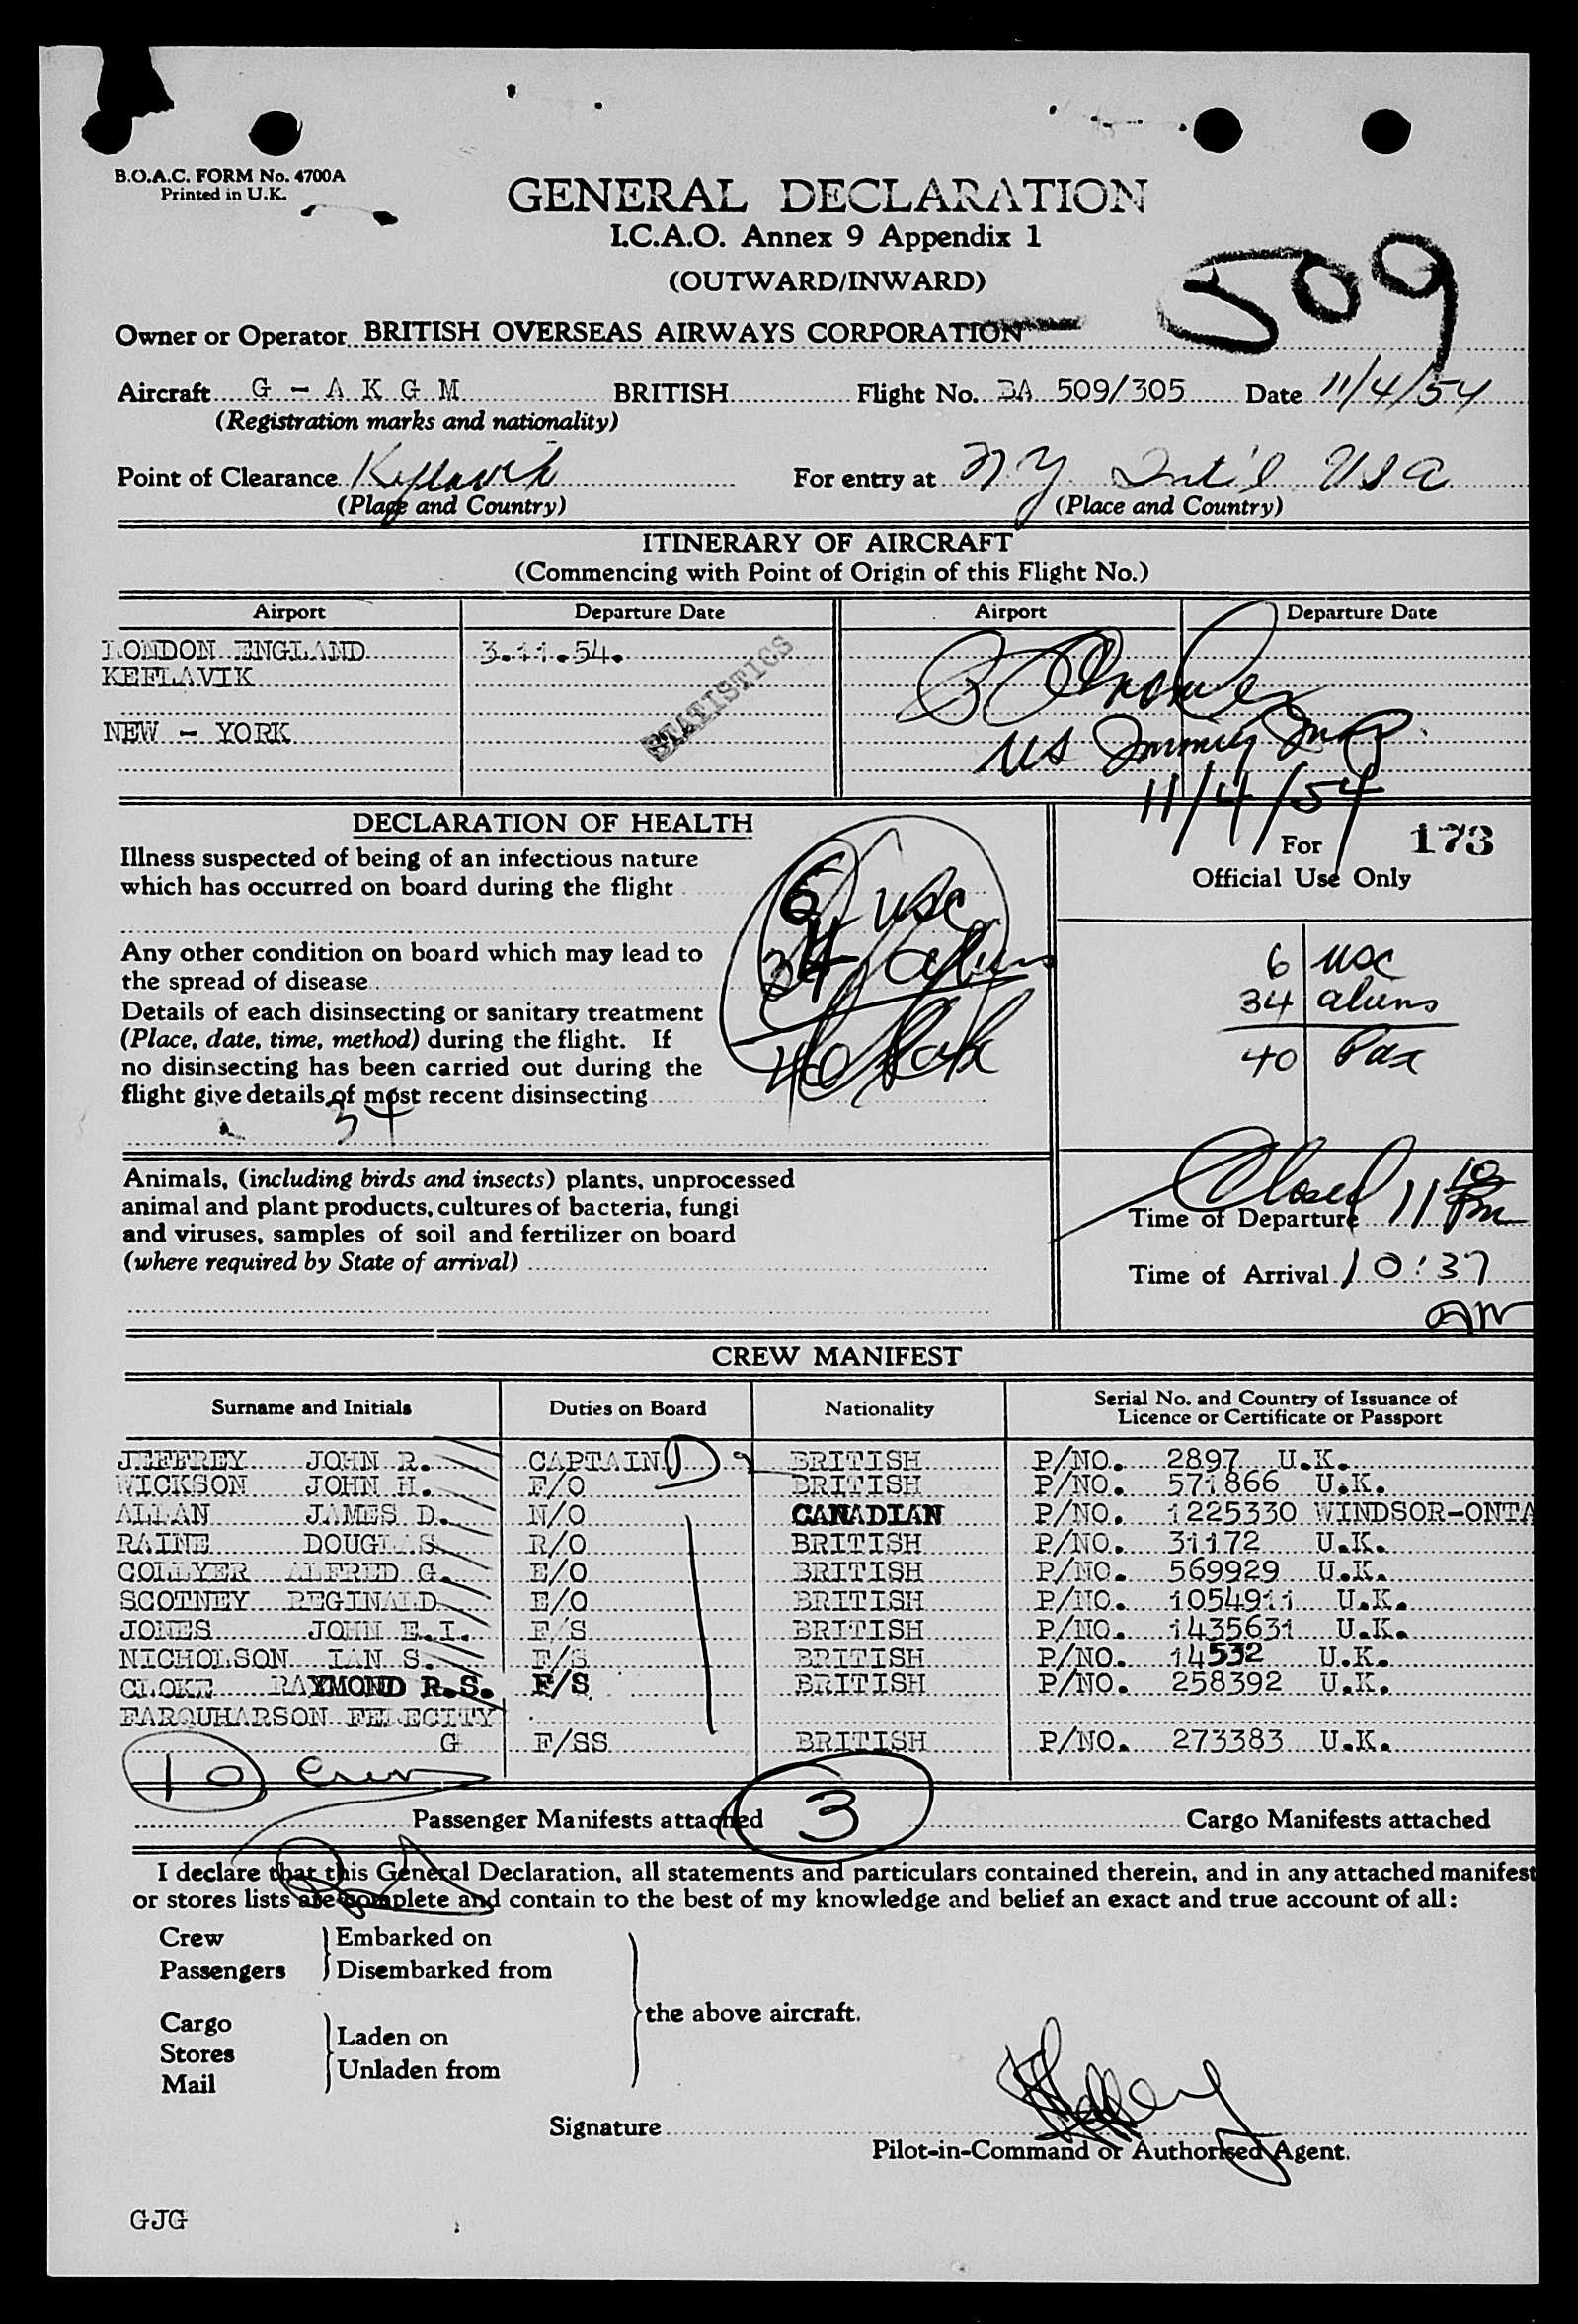 B.O.A.C. FORM No. 4700A
Printed in U.K.
GENERAL DECLARATION
I.C.A.O. Annex 9 Appendix 1
(OUTWARD/INWARD)
509
Owner or Operator BRITISH OVERSEAS AIRWAYS CORPORATION
Aircraft G - A K G M BRITISH Flight No. BA 509/305 Date 11/4/54
(Registration marks and nationality)
Point of Clearance Keflavik For entry at NY Int'l USA
(Place and Country) (Place and Country)
ITINERARY OF AIRCRAFT
(Commencing with Point of Origin of this Flight No.)
Airport Departure Date Airport Departure Date
LONDON ENGLAND 3.11.54.
KEFLAVIK
NEW - YORK
STATISTICS
US Immig Insp
11/4/54
DECLARATION OF HEALTH
Illness suspected of being of an infectious nature
which has occurred on board during the flight
Any other condition on board which may lead to
the spread of disease
Details of each disinsecting or sanitary treatment
(Place, date, time, method) during the flight. If
no disinsecting has been carried out during the
flight give details of most recent disinsecting
34
6 usc
34 aliens
40 Pax
For 173
Official Use Only
6 usc
34 aliens
40 Pax
Animals, (including birds and insects) plants, unprocessed
animal and plant products, cultures of bacteria, fungi
and viruses, samples of soil and fertilizer on board
(where required by State of arrival)
Closed 11 10 Pm
Time of Departure
Time of Arrival 10:37
AM
CREW MANIFEST
Surname and Initials Duties on Board Nationality Serial No. and Country of Issuance of
Licence or Certificate or Passport
JEFFREY JOHN R. CAPTAIN BRITISH P/NO. 2897 U.K.
WICKSON JOHN H. F/O BRITISH P/NO. 571866 U.K.
ALLAN JAMES D. N/O CANADIAN P/NO. 1225330 WINDSOR-ONTA
RAINE DOUGLAS R/O BRITISH P/NO. 31172 U.K.
COLLYER ALFRED G. E/O BRITISH P/NO. 569929 U.K.
SCOTNEY REGINALD E/O BRITISH P/NO. 1054911 U.K.
JONES JOHN E.I. F/S BRITISH P/NO. 1435631 U.K.
NICHOLSON IAN S. F/S BRITISH P/NO. 14532 U.K.
CLOKE RAYMOND R.S. F/S BRITISH P/NO. 258392 U.K.
FARQUHARSON FELECITY
G F/SS BRITISH P/NO. 273383 U.K.
10 Crew
Passenger Manifests attached 3 Cargo Manifests attached
I declare that this General Declaration, all statements and particulars contained therein, and in any attached manifest
or stores lists are complete and contain to the best of my knowledge and belief an exact and true account of all:
Crew Embarked on
Passengers Disembarked from
the above aircraft.
Cargo
Stores Laden on
Mail Unladen from
Signature
Pilot-in-Command or Authorised Agent.
GJG